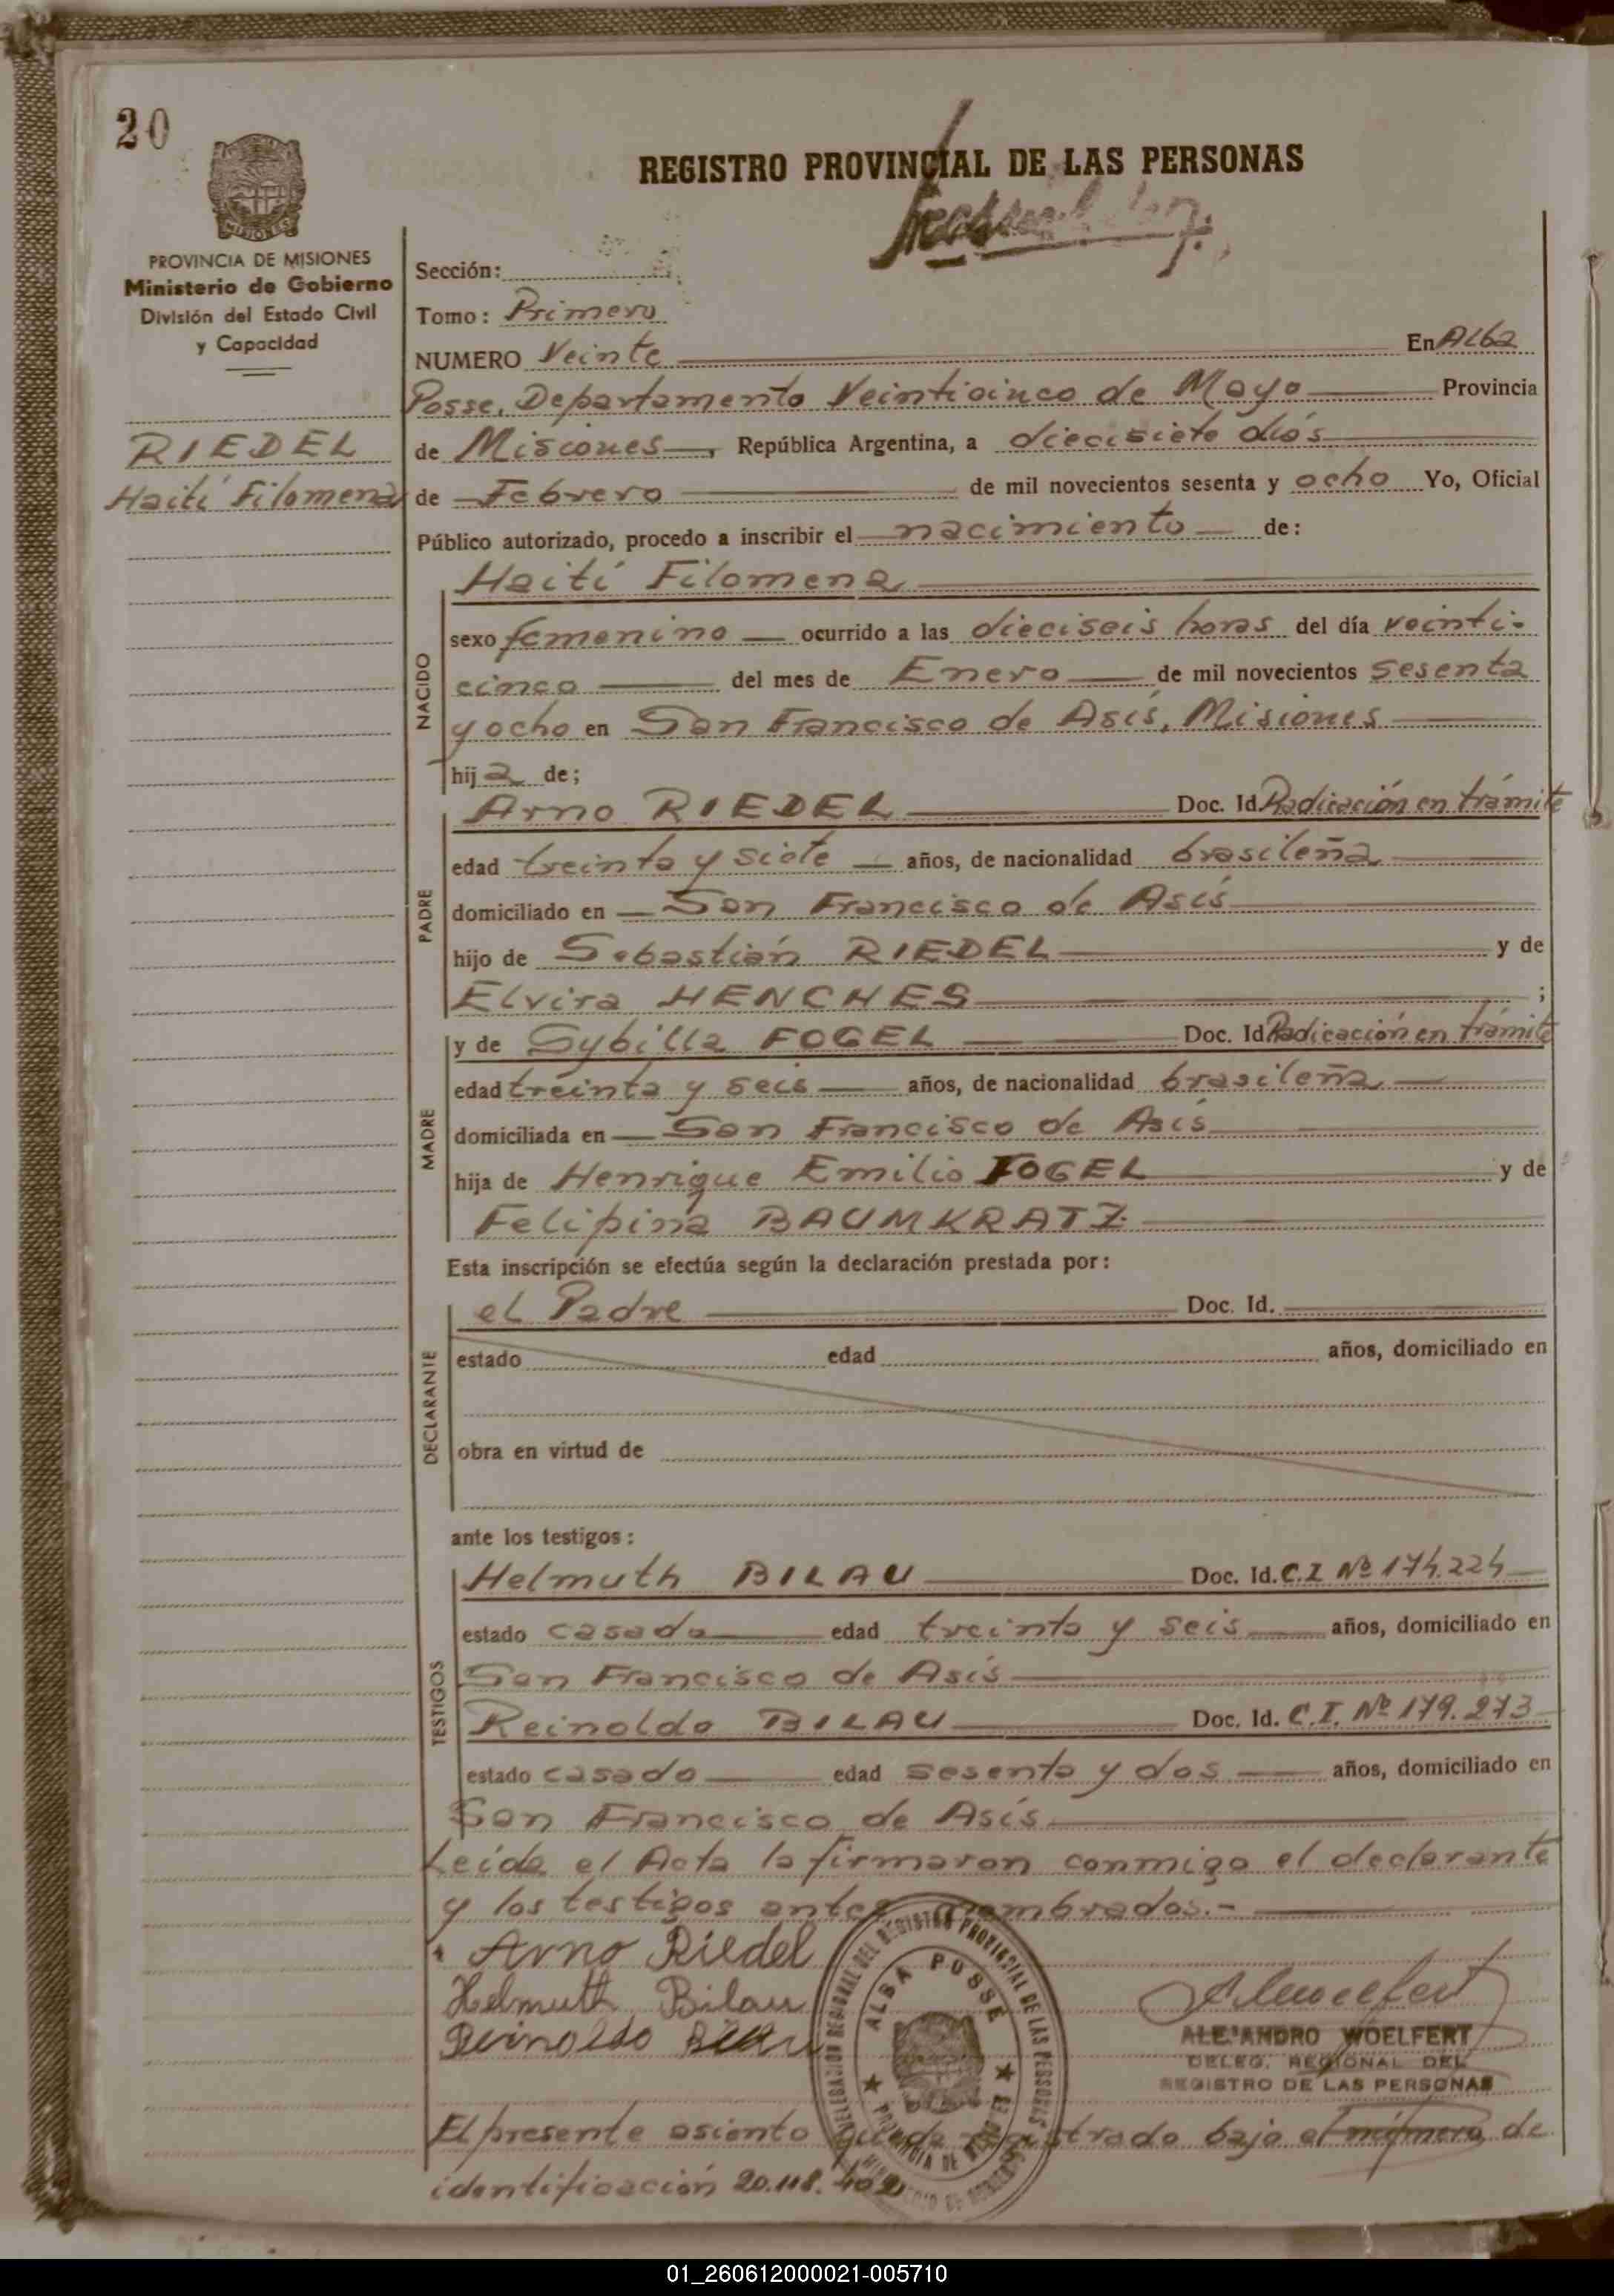 20
REGISTRO PROVINCIAL DE LAS PERSONAS
MISIONES
PROVINCIA DE MISIONES
Ministerio de Gobierno
División del Estado Civil
y Capacidad
RIEDEL
Haití Filomena
Sección:
Tomo: Primero
NUMERO Veinte En Alba
Posse, Departamento Veinticinco de Mayo Provincia
de Misiones, República Argentina, a diecisiete días
de Febrero de mil novecientos sesenta y ocho Yo, Oficial
Público autorizado, procedo a inscribir el nacimiento de:
Haití Filomena
NACIDO
sexo femenino ocurrido a las dieciseis horas del día veinti-
cinco del mes de Enero de mil novecientos sesenta
y ocho en San Francisco de Asís, Misiones
hija de;
PADRE
Arno RIEDEL Doc. Id. Radicación en trámite
edad treinta y siete años, de nacionalidad brasileña
domiciliado en San Francisco de Asís
hijo de Sebastián RIEDEL y de
Elvira HENCHES ;
MADRE
y de Sybilla FOGEL Doc. Id Radicación en trámite
edad treinta y seis años, de nacionalidad brasileña
domiciliada en San Francisco de Asís
hija de Henrique Emilio FOGEL y de
Felipina BAUMKRATZ
Esta inscripción se efectúa según la declaración prestada por:
DECLARANTE
el Padre Doc. Id.
estado edad años, domiciliado en
obra en virtud de
ante los testigos:
TESTIGOS
Helmuth BILAU Doc. Id. C.I Nº 174.224
estado casado edad treinta y seis años, domiciliado en
San Francisco de Asís
Reinoldo BILAU Doc. Id. C.I. Nº 179.273
estado casado edad sesenta y dos años, domiciliado en
San Francisco de Asís
Leida el Acta la firmaron conmigo el declarante
y los testigos antes nombrados.-
Arno Riedel
Helmuth Bilau
Reinoldo Bilau
DELEGACION REGIONAL DEL REGISTRO PROVINCIAL DE LAS PERSONAS
ALBA POSSE
PROVINCIA DE MISIONES
ALEJANDRO WOELFERT
DELEG. REGIONAL DEL
REGISTRO DE LAS PERSONAS
El presente asiento queda registrado bajo el número de
identificación 20.118.
01_260612000021-005710